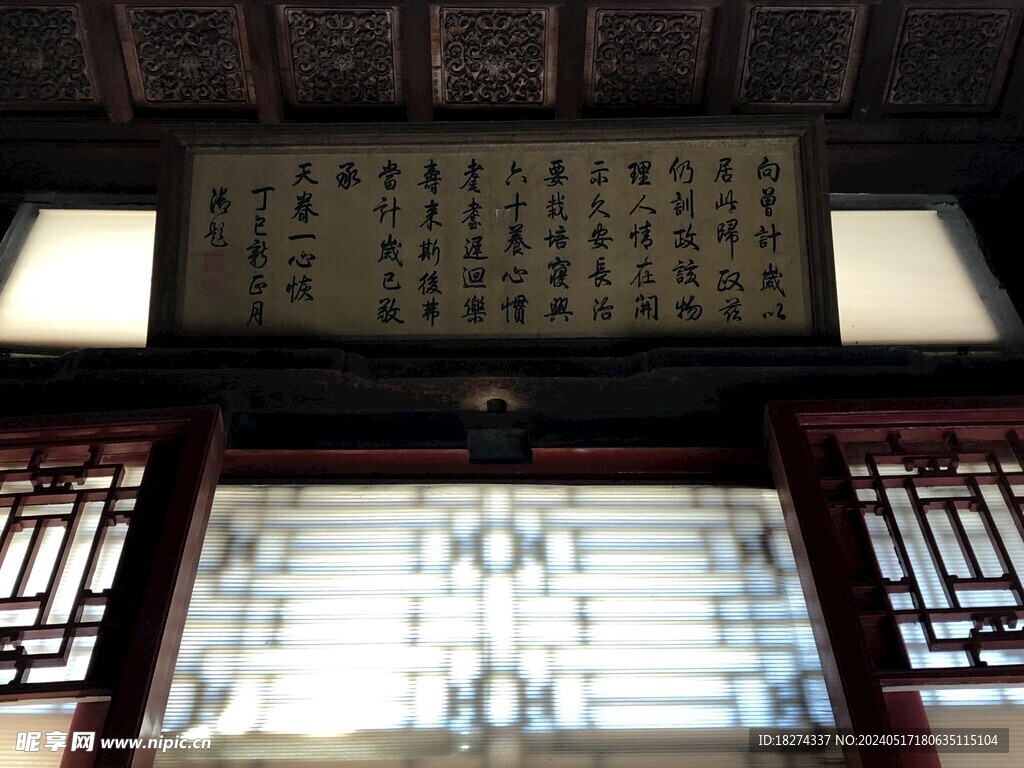 向曾計歲以
居此歸政茲
仍訓政該物
理人情在開
示久安長治
要栽培寢興
六十養心慣
耄耋遲迴樂
壽来斯後茀
當計歲已敬
承
天眷一心恢
丁巳新正月
御題
昵享网 www.nipic.cn
ID:18274337 NO:20240517180635115104